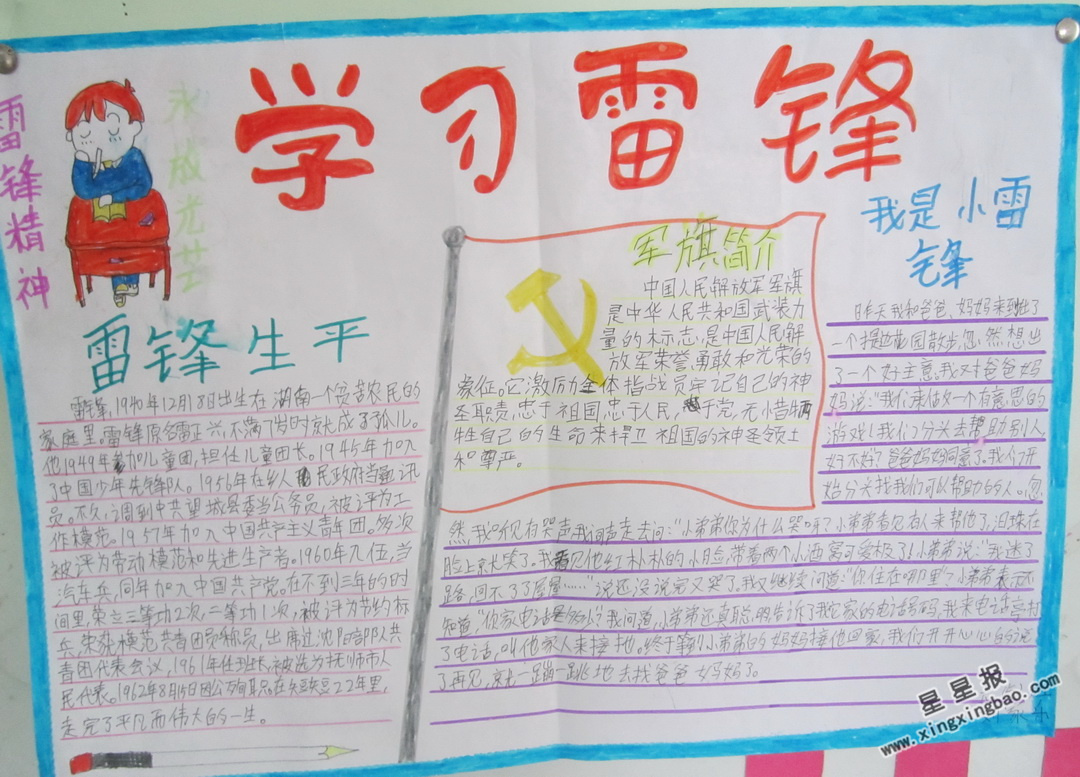 学习雷锋
雷锋精神
永放光芒
雷锋生平
雷锋,1940年12月18日出生在湖南一个贫苦农民的
家庭里。雷锋原名雷正兴,不满7岁时就成了孤儿。
他1949年参加儿童团,担任儿童团长。1945年加入
了中国少年先锋队。1956年在乡人民政府当通讯
员。不久,调到中共望城县委当公务员,被评为工
作模范。1957年加入中国共产主义青年团。多次
被评为劳动模范和先进生产者。1960年入伍,当
汽车兵,同年加入中国共产党。在不到三年的时
间里,荣立三等功2次,二等功1次,被评为节约标
兵,荣获模范共青团员称号,出席过沈阳部队共
青团代表会议,1961年任班长,被选为抚顺市人
民代表。1962年8月15日因公殉职。在短短22年里,
走完了平凡而伟大的一生。
军旗简介
中国人民解放军军旗
是中华人民共和国武装力
量的标志,是中国人民解
放军荣誉,勇敢和光荣的
象征。它激励全体指战员牢记自己的神
圣职责,忠于祖国,忠于人民,忠于党,无惜牺
牲自己的生命来捍卫祖国的神圣领土
和尊严。
我是小雷
锋
昨天我和爸爸、妈妈来到了
一个提蓝花园散步,忽然想出
了一个好主意。我对爸爸妈
妈说:“我们来做一个有意思的
游戏!我们分头去帮助别人,
好不好?爸爸妈妈同意了。我们开
始分头找我们可以帮助的人。忽
然,我听见有哭声,我闻声走去问:“小弟弟你为什么哭呀?小弟弟看见有人来帮他了,泪珠在
脸上就笑了。我看见他红朴朴的小脸,带着两个小酒窝可爱极了!小弟弟说:“我迷了
路,回不了了屋屋……”说还没说完又哭了。我又继续问道:“你住在哪里?小弟弟表示不
知道,“你家电话是多少?我问道,小弟弟还真聪明告诉了我它家的电话号码,我来电话亭打
了电话,叫他家人来接他。终于等到小弟弟的妈妈接他回家,我们开开心心的说
了再见,就一蹦一跳地去找爸爸妈妈了。
星星报
www.xingxingbao.com